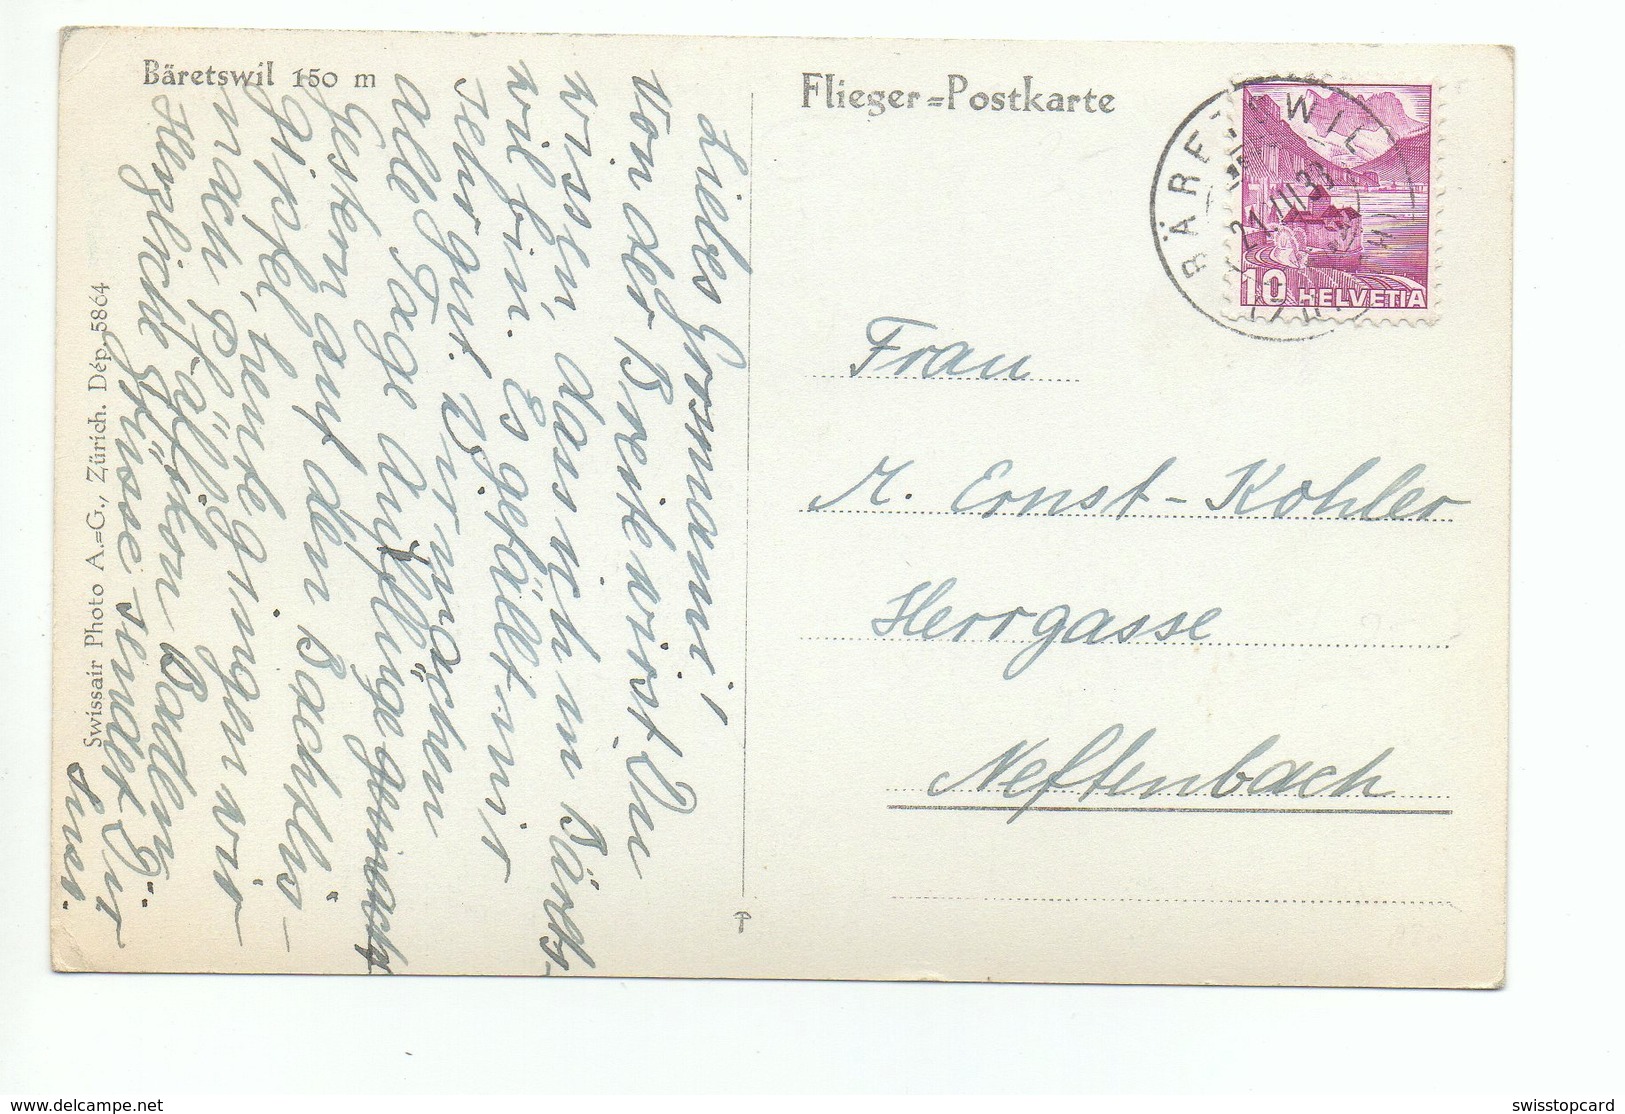 Bäretswil 150 m
Flieger=Postkarte
BÄRETSWIL
21.
10 HELVETIA
Swissair Photo A.=G., Zürich. Dép. 5864
Liebes Grosmami!
Von der Breite wirst Du
wissen, dass ich in Bärets-
wil bin. Es gefällt mir
sehr gut. Wir machen
alle Tage Ausflüge
Gestern auf den Bachtlis-
gipfel, heute gingen wir
nach Pfäffikon Baden.
Herzliche Grüsse sendet Dir
Susi.
Frau
M. Ernst-Kohler
Herrgasse
Neftenbach
www.delcampe.net
swisstopcard